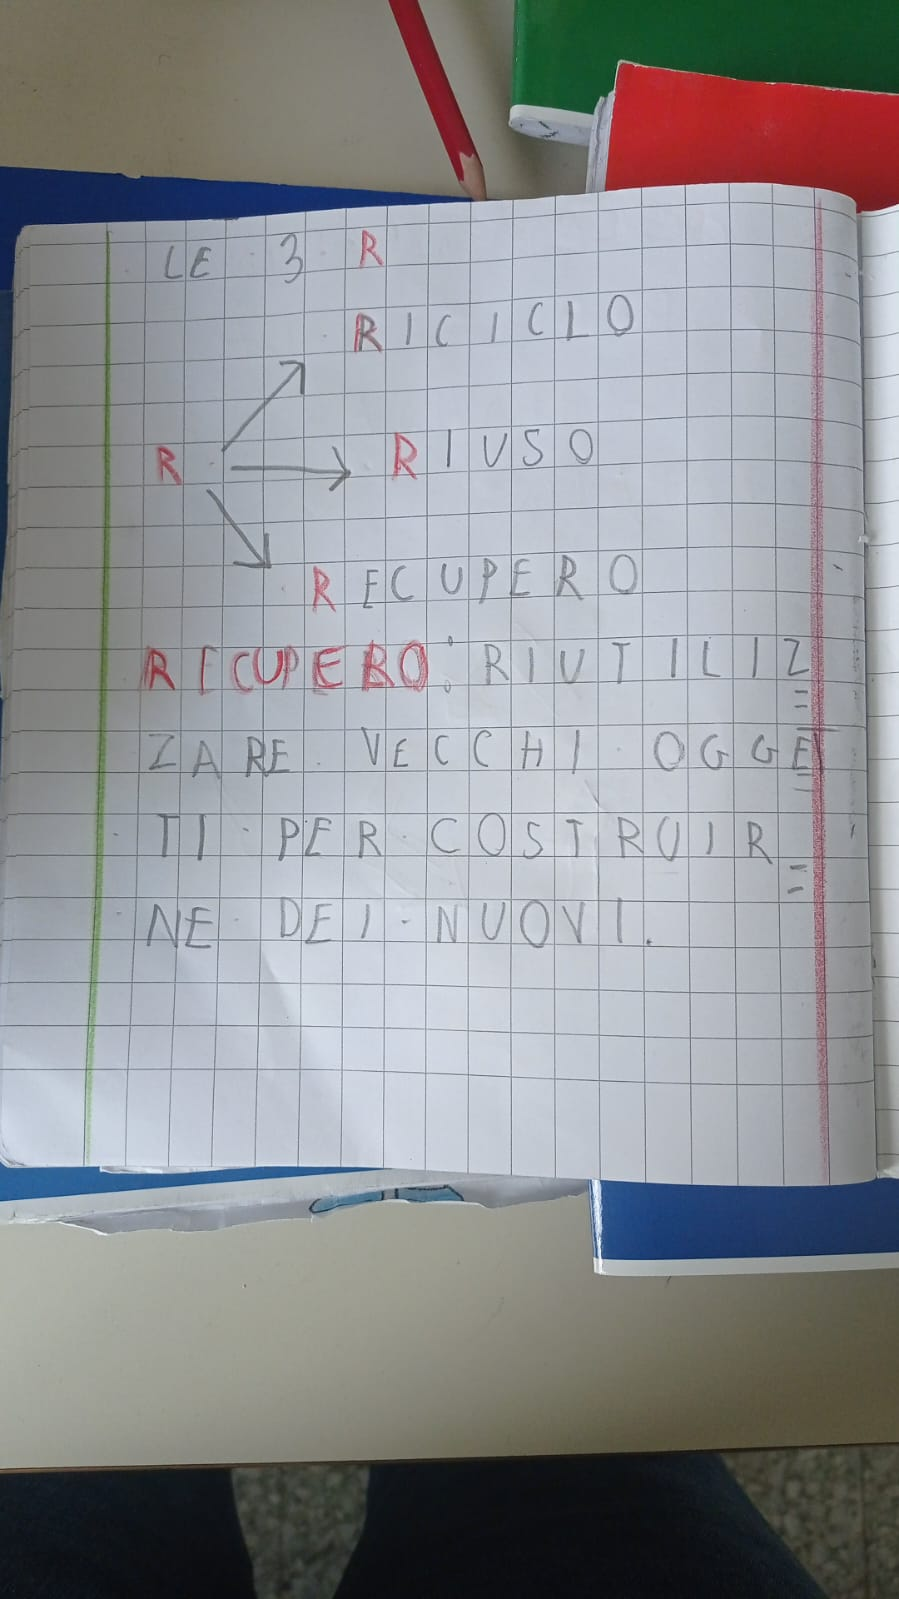 LE 3 R
RICICLO
R RIUSO
RECUPERO
RECUPERO: RIUTILIZ=
ZARE VECCHI OGGET=
TI PER COSTRUIR=
NE DEI NUOVI.